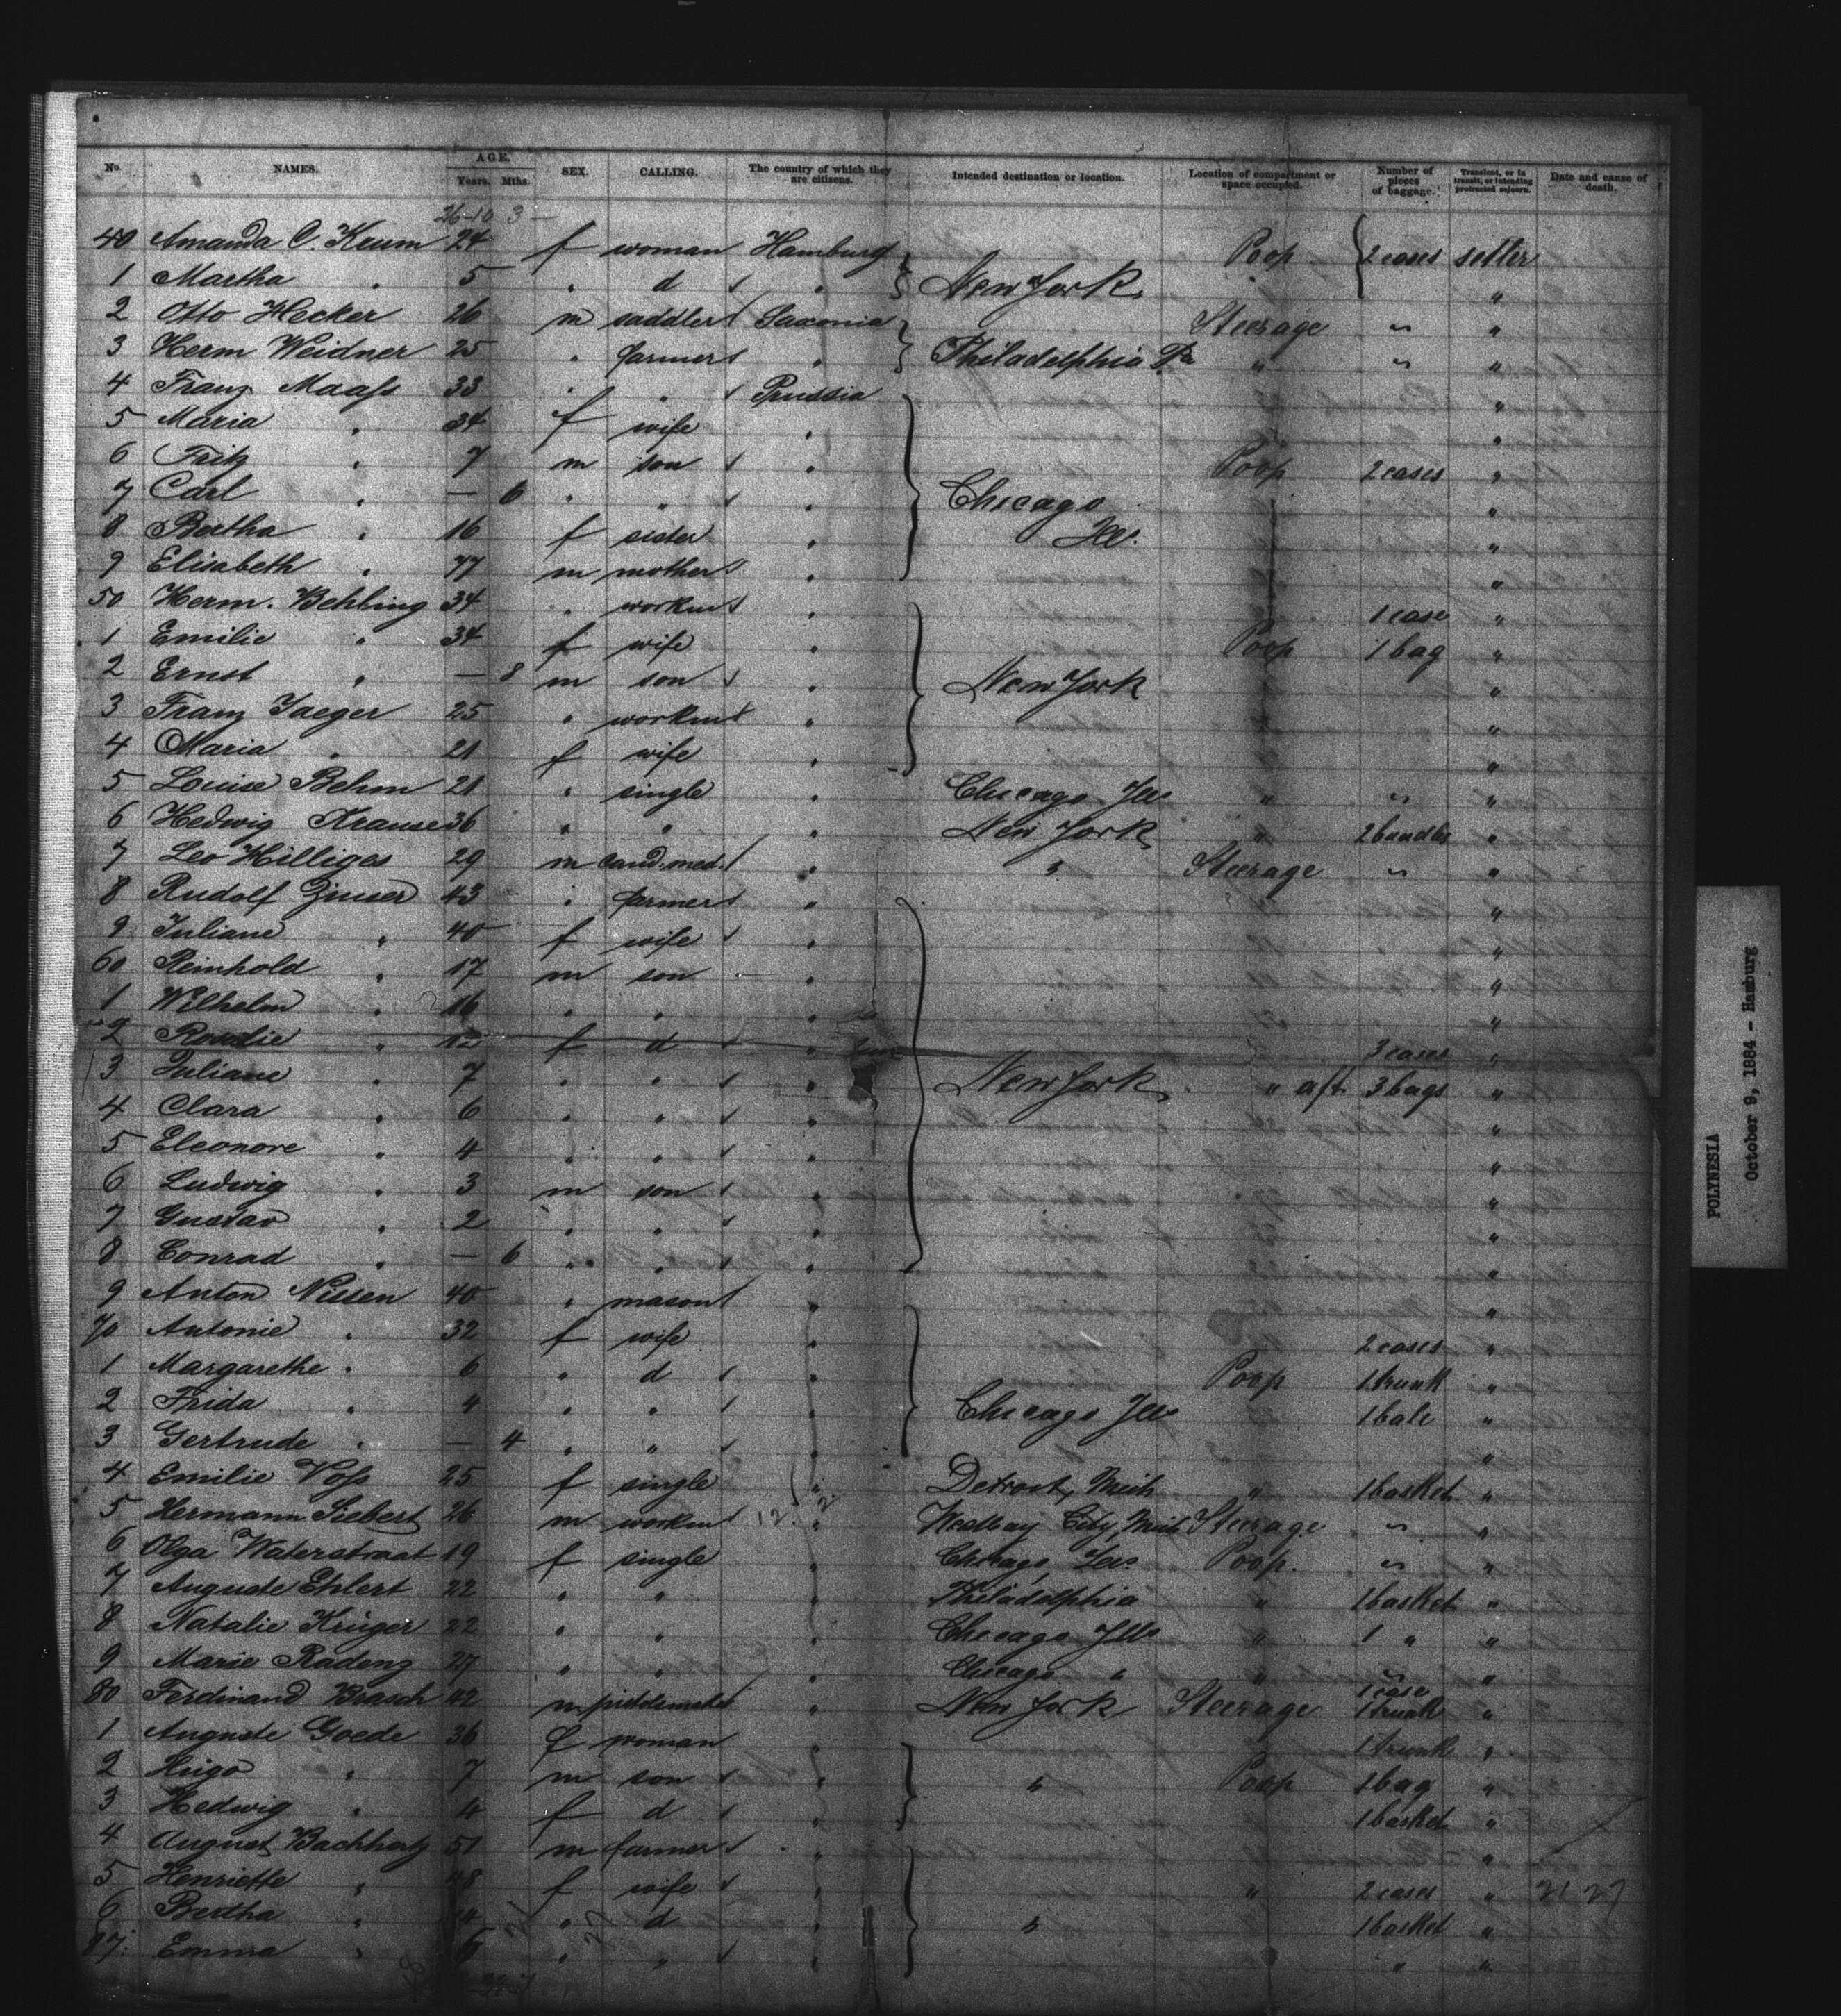 No. NAMES. AGE. Years. Mths. SEX. CALLING. The country of which they are citizens. Intended destination or location. Location of compartment or space occupied. Number of pieces of baggage. Transient, or in transit, or intending protracted sojourn. Date and cause of death.
26-10 3 —
40 Amanda C. Krum 24 f woman Hamburg Poop 2 cases settler
1 Martha " 5 " d " New York "
2 Otto Hecker 26 m saddler Saxonia Steerage " "
3 Herm Weidner 25 " farmer " Philadelphia Pa " " "
4 Franz Maafs 33 " " Prussia "
5 Maria " 34 f wife " "
6 Fritz " 7 m son " Poop 2 cases "
7 Carl " — 6 " " " Chicago "
8 Bertha " 16 f sister " Ills. "
9 Elisabeth " 77 m mother " "
50 Herm. Behling 34 " workm " 1 case "
1 Emilie " 34 f wife " Poop 1 bag "
2 Ernst " — 8 m son " New York "
3 Franz Jaeger 25 " workm " "
4 Maria " 21 f wife " "
5 Louise Behm 21 " single " Chicago Ills " " "
6 Hedwig Krause 36 " " " New York " 2 bundles "
7 Leo Hilliges 29 m cand. med. " " Steerage " "
8 Rudolf Zinser 43 " farmer " "
9 Juliane " 40 f wife " "
60 Reinhold " 17 m son " "
1 Wilhelm " 16 " " " "
2 Rosalie " 12 f d " 3 cases "
3 Juliane " 7 " " " New York " aft 3 bags "
4 Clara " 6 " " " "
5 Eleonore " 4 " " " "
6 Ludwig " 3 m son " "
7 Gustav " 2 " " " "
8 Conrad " — 6 " " " "
9 Anton Nissen 40 " mason " "
70 Antonie " 32 f wife " 2 cases "
1 Margarethe " 6 " d " Poop 1 trunk "
2 Frida " 4 " " " Chicago Ills 1 bale "
3 Gertrude " — 4 " " " "
4 Emilie Vofs 25 f single " Detroit, Mich " 1 basket "
5 Hermann Siebert 26 m workm " Westbay City, Mich Steerage " "
6 Olga Waterstraat 19 f single " Chicago, Ills. Poop. " "
7 Auguste Ehlert 22 " " " Philadelphia " 1 basket "
8 Natalie Krüger 22 " " " Chicago Ills " 1 " "
9 Marie Radenz 27 " " " Chicago " " " "
1 case
80 Ferdinand Brasch 42 m " New York Steerage 1 trunk "
1 Auguste Goede 36 f woman " 1 trunk "
2 Hugo " 7 m son " " Poop 1 bag "
3 Hedwig " 4 f d " 1 basket "
4 August Bachholz 51 m farmer " "
5 Henriette " 48 f wife " " 2 cases " 21 27
6 Bertha " 14 " d " " 1 basket "
87. Emma " 6 " " " " "
POLYNESIA
October 9, 1884 - Hamburg